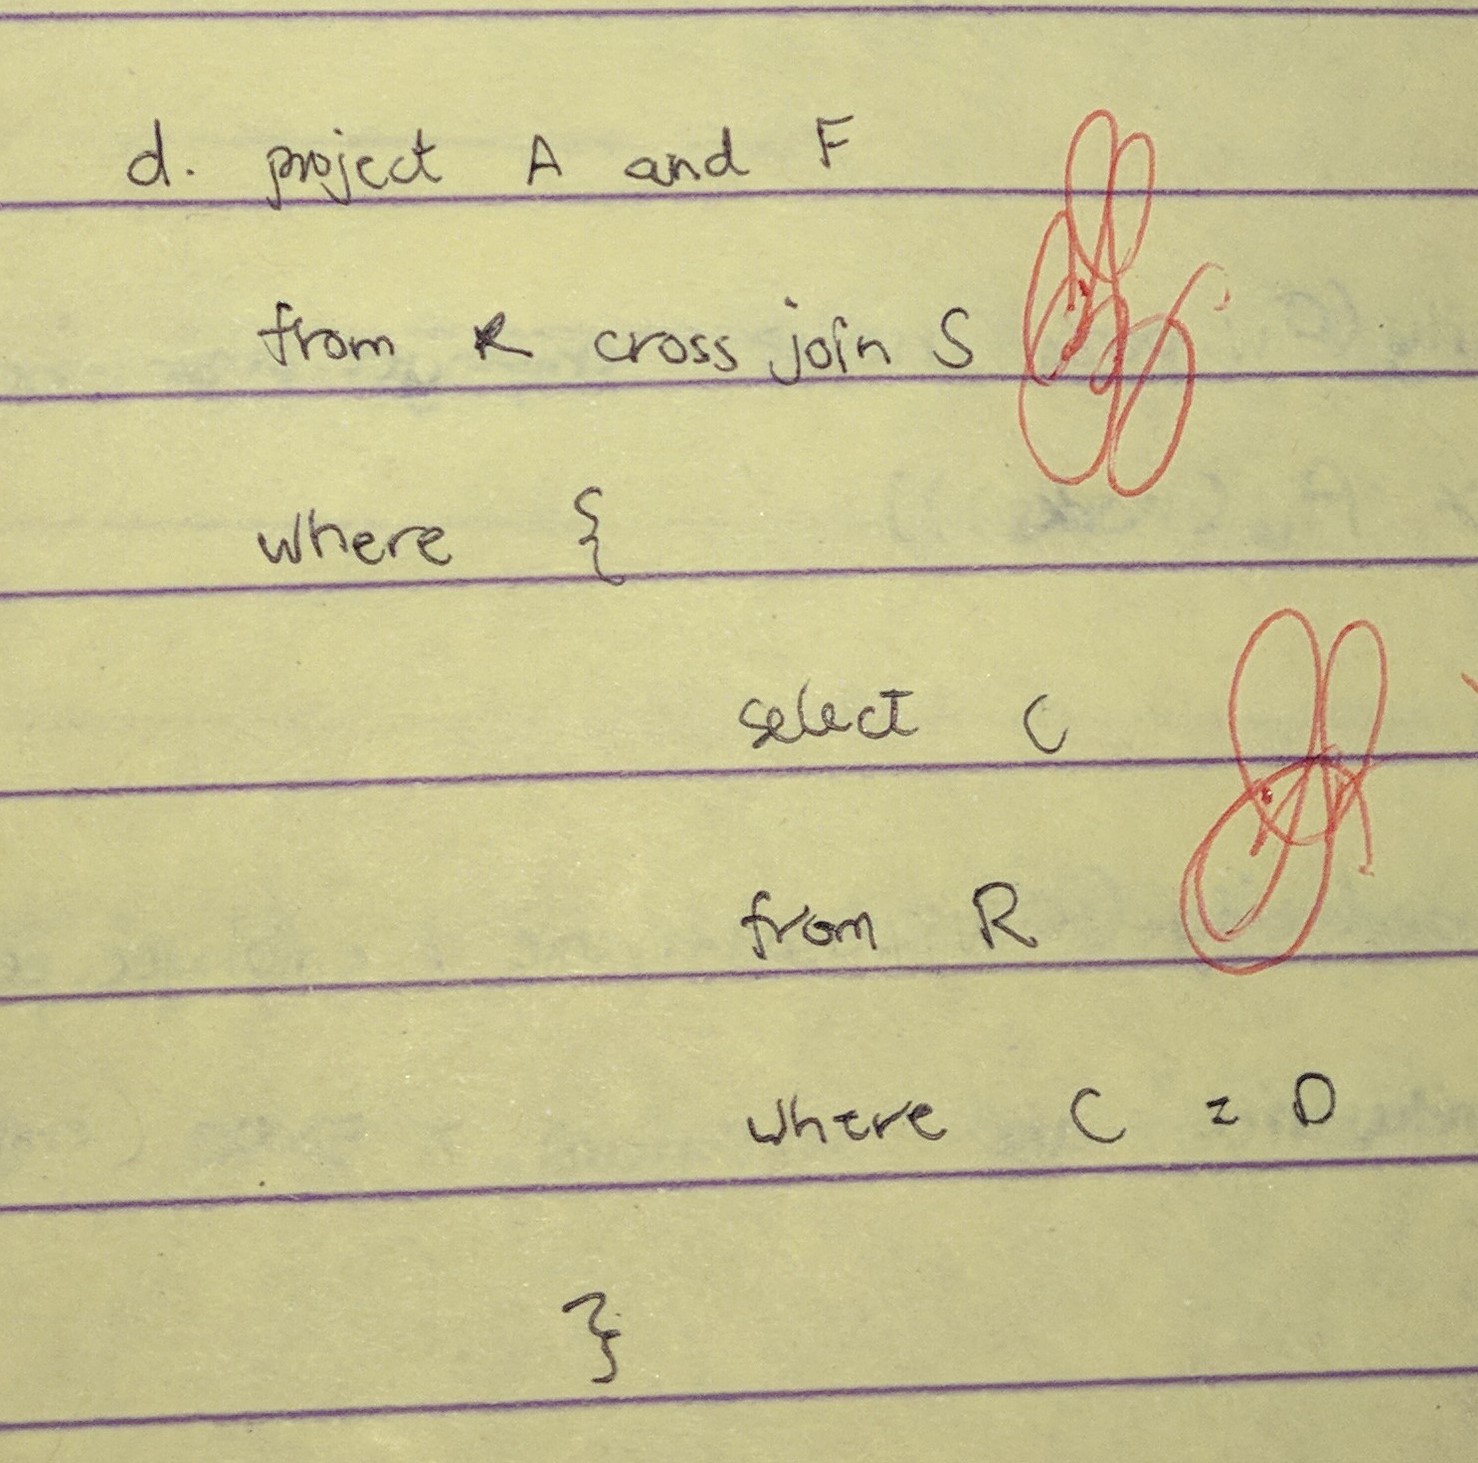 d. project A and F
from R cross join S
where {
select C
from R
where C = D
}